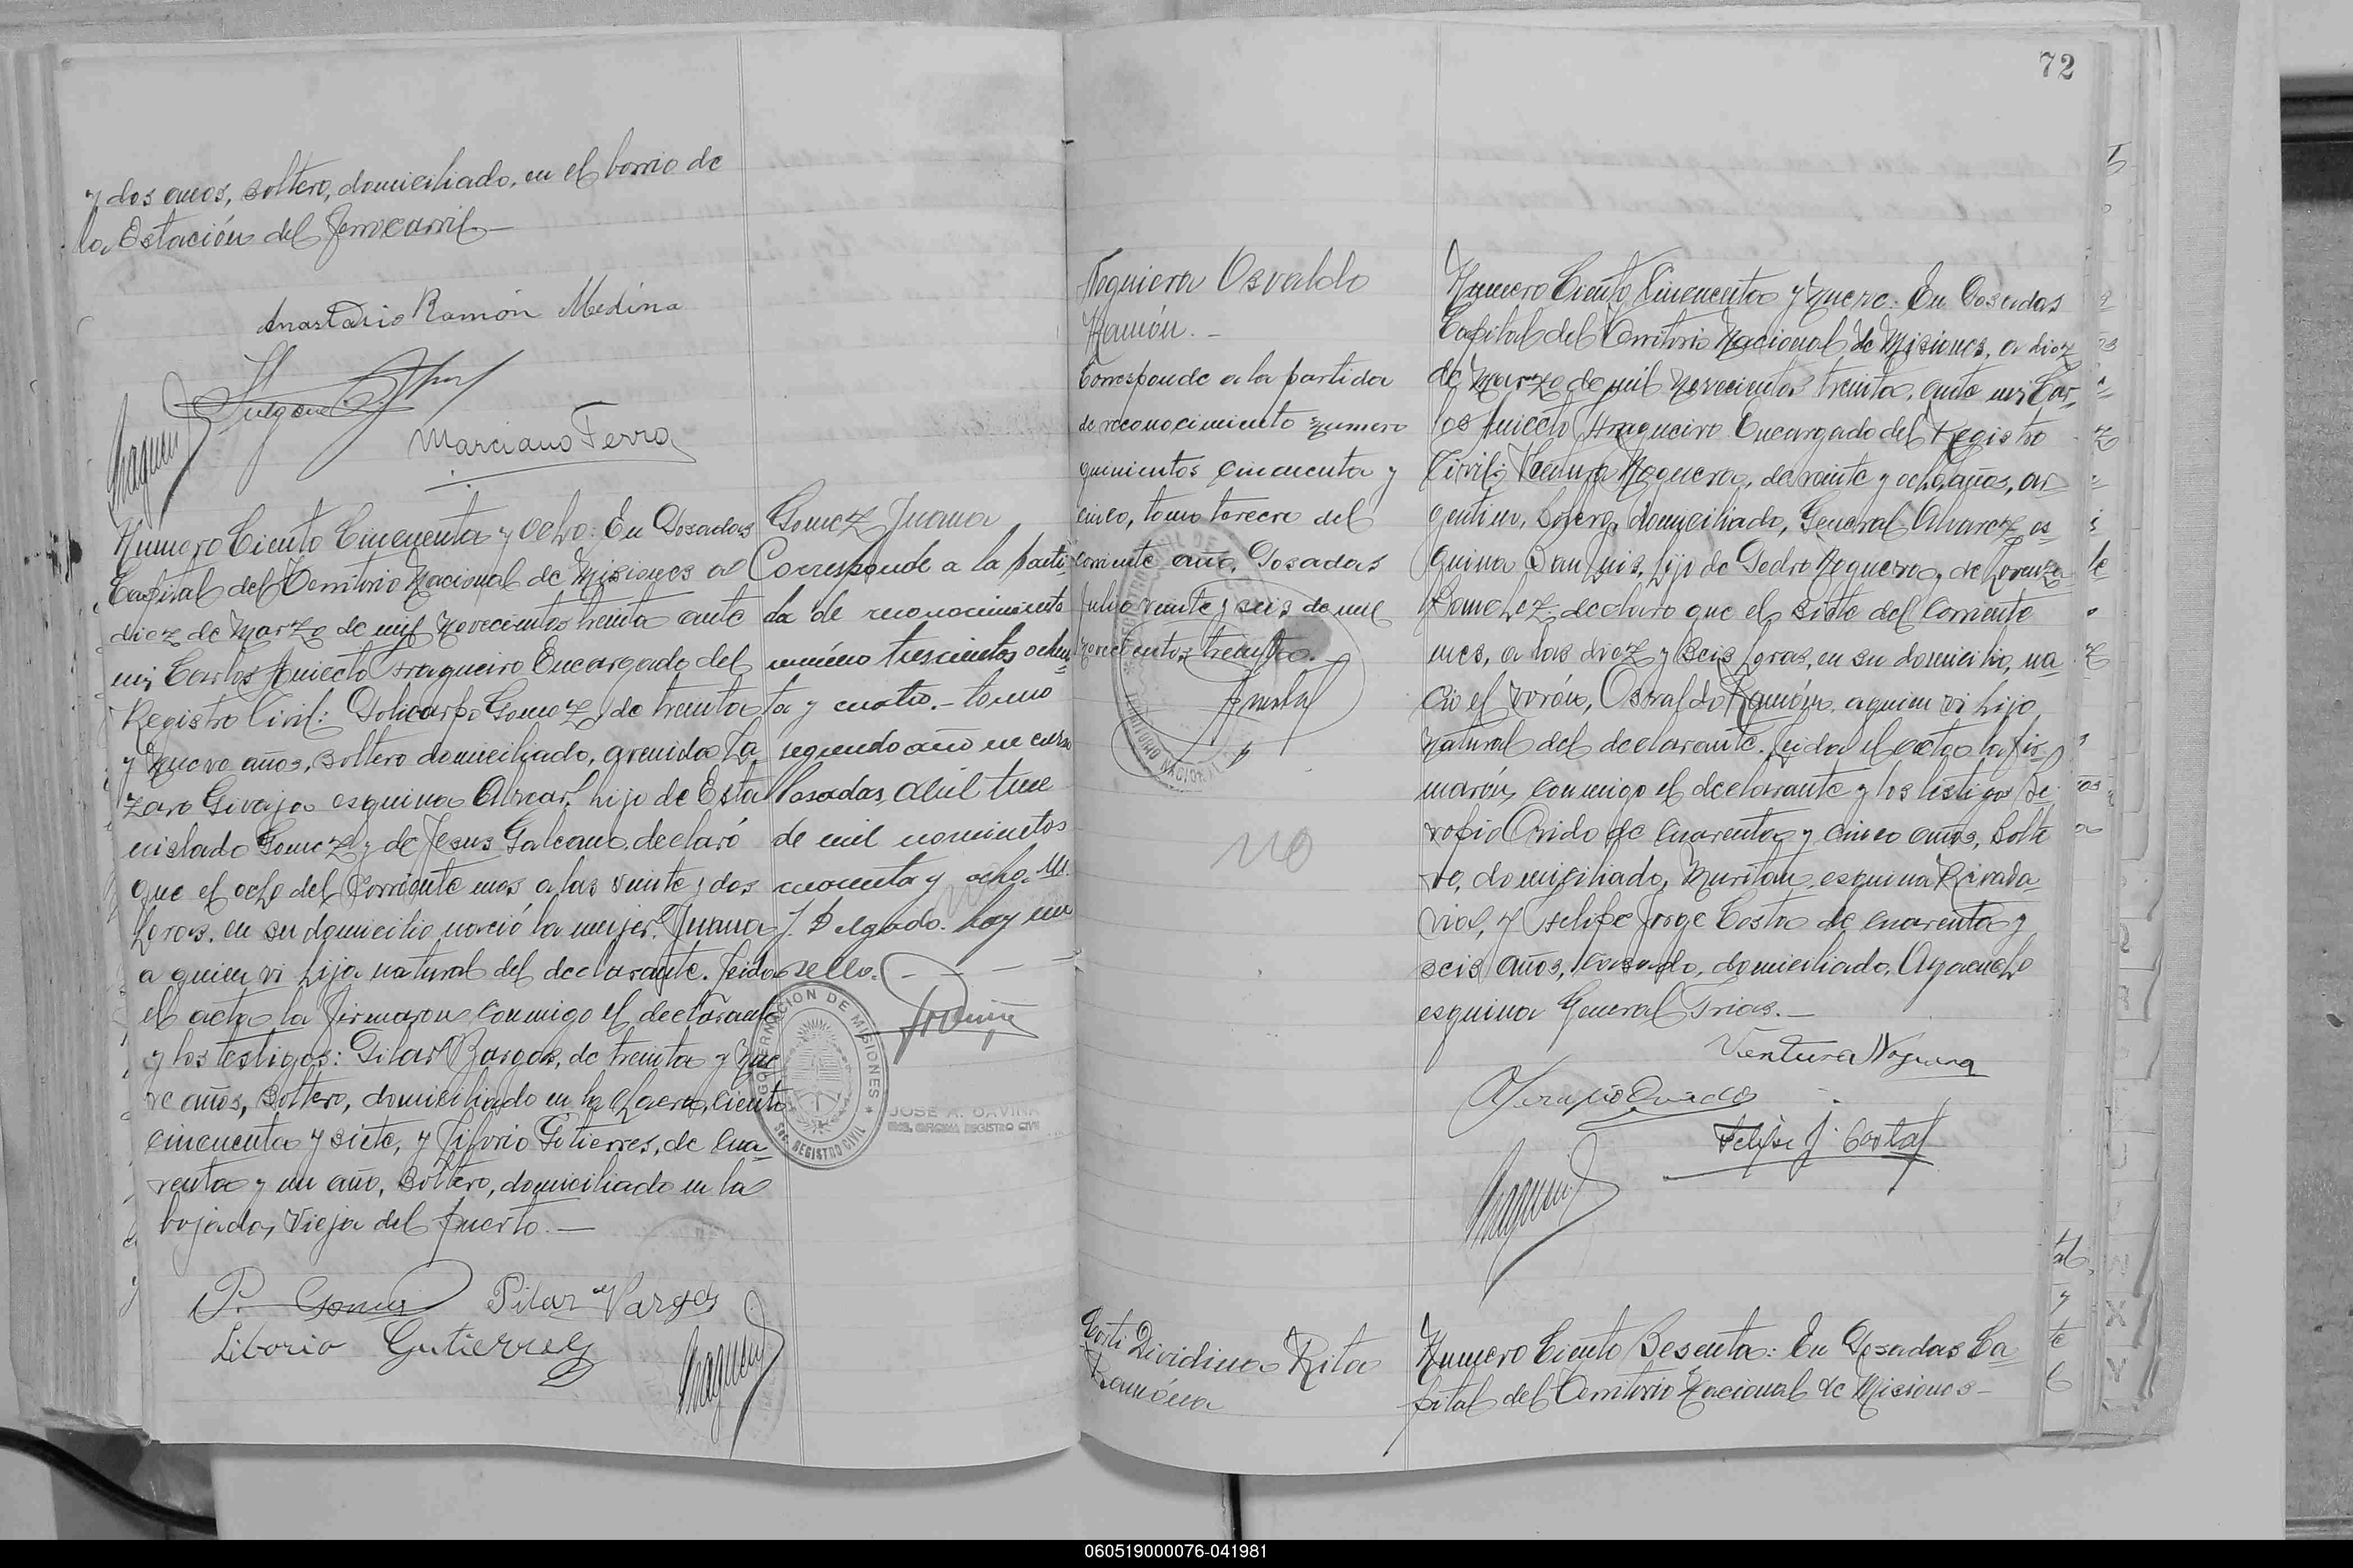 y dos años, soltero, domiciliado, en el barrio de
la Estación del Ferrocarril —
Anastacio Ramón Medina
Marciano Ferro
Número Ciento Cincuenta y Ocho: En Posadas
Capital del Territorio Nacional de Misiones a
diez de Marzo de mil novecientos treinta ante
mi Carlos Aniceto Fragueiro Encargado del
Registro Civil: Policarpo Gomez, de treinta
y nueve años, soltero domiciliado, avenida La
zaro Givajo esquina Alvear, hijo de Esta
nislado Gomez y de Jesus Galeano, declaró
que el ocho del corriente mes a las veinte y dos
horas, en su domicilio nació la mujer: Juana
a quien vi hija natural del declarante. Leida
el acta la firmaron conmigo el declarante
y los testigos: Pilar Vargas, de treinta y nue
ve años, soltero, domiciliado en la chacra, ciento
cincuenta y siete, y Liborio Gutierres, de cua-
renta y un año, soltero, domiciliado en la
bajada, vieja del puerto. —
P. Gomez Pilar Vargas
Liborio Gutierrez
Gomez Juana
Corresponde a la parti-
da de reconocimiento
número trescientos ochen-
ta y cuatro. - tomo
segundo año en curso
Posadas, abril trece
de mil novecientos
cuarenta y ocho.
J. Delgado. hay un
sello. - - - -
GOBERNACION DE MISIONES
REGISTRO CIVIL
JOSE A. GAVIÑA
ENC. OFICINA REGISTRO CIVIL
72
Noguiera Osvaldo
Ramón. -
Corresponde a la partida
de reconocimiento número
quinientos cincuenta y
cinco, tomo tercero del
corriente año, Posadas
Julio veinte y seis de mil
novecientos treinta.
no
Numero Ciento Cincuenta y Nueve: En Posadas
Capital del Territorio Nacional de Misiones, a diez
de Marzo de mil novecientos treinta, ante mi Car-
los Aniceto Fragueiro Encargado del Registro
Civil: Ventura Noguera, de veinte y ocho años, ar
gentino, soltero, domiciliado, General Alvarez es
quina San Luis, hijo de Pedro Noguera y de Lorenza
Sanchez, declaro que el siete del corriente
mes, a las diez y seis horas, en su domicilio, na-
cio el varón, Osvaldo Ramón a quien vi hijo
natural del declarante. Leida el acta la fir-
maron, conmigo el declarante y los testigos Se
rapio Ovido de cuarenta y cinco años, solte
ro, domiciliado, esquina Rivada
via, y Felipe Jorge Costa de cuarenta y
seis años, casado, domiciliado, Ayacucho
esquina General Frias. —
Ventura Noguera
Serapio Oviedo
Felipe J. Costa
Costi Dividina Rita
Ramóna
Numero Ciento Sesenta: En Posadas Ca-
pital del Territorio Nacional de Misiones -
060519000076-041981